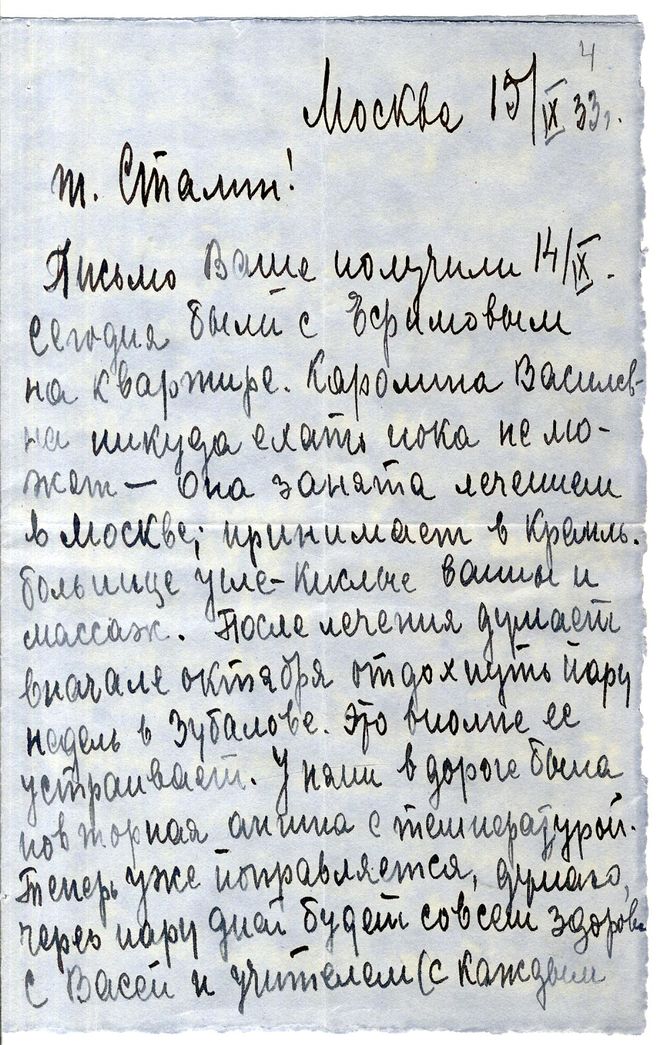 4
Москва 15/IX 33г.
т. Сталин!
Письмо Ваше получили 14/IX.
Сегодня были с Ефимовым
на квартире. Каролина Василев-
на никуда ехать пока не мо-
жет — Она занята лечением
в Москве; принимает в Кремль.
больнице угле-кислые ванны и
массаж. После лечения думает
вначале октября отдохнуть пару
недель в Зубалове. Это вполне ее
устраивает. У няни в дороге была
повторная ангина с температурой.
Теперь уже поправляется, думаю,
через пару дней будет совсем здорова
с Васей и учителем (с каждым